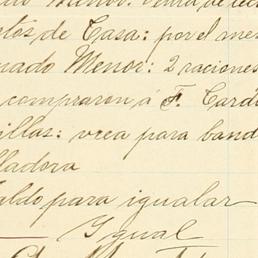 tos de Casa: por el mes
nado Menor: 2 raciones
compraron á F. Card
illas: vrea para band
lladora
aldo para igualar
Igual